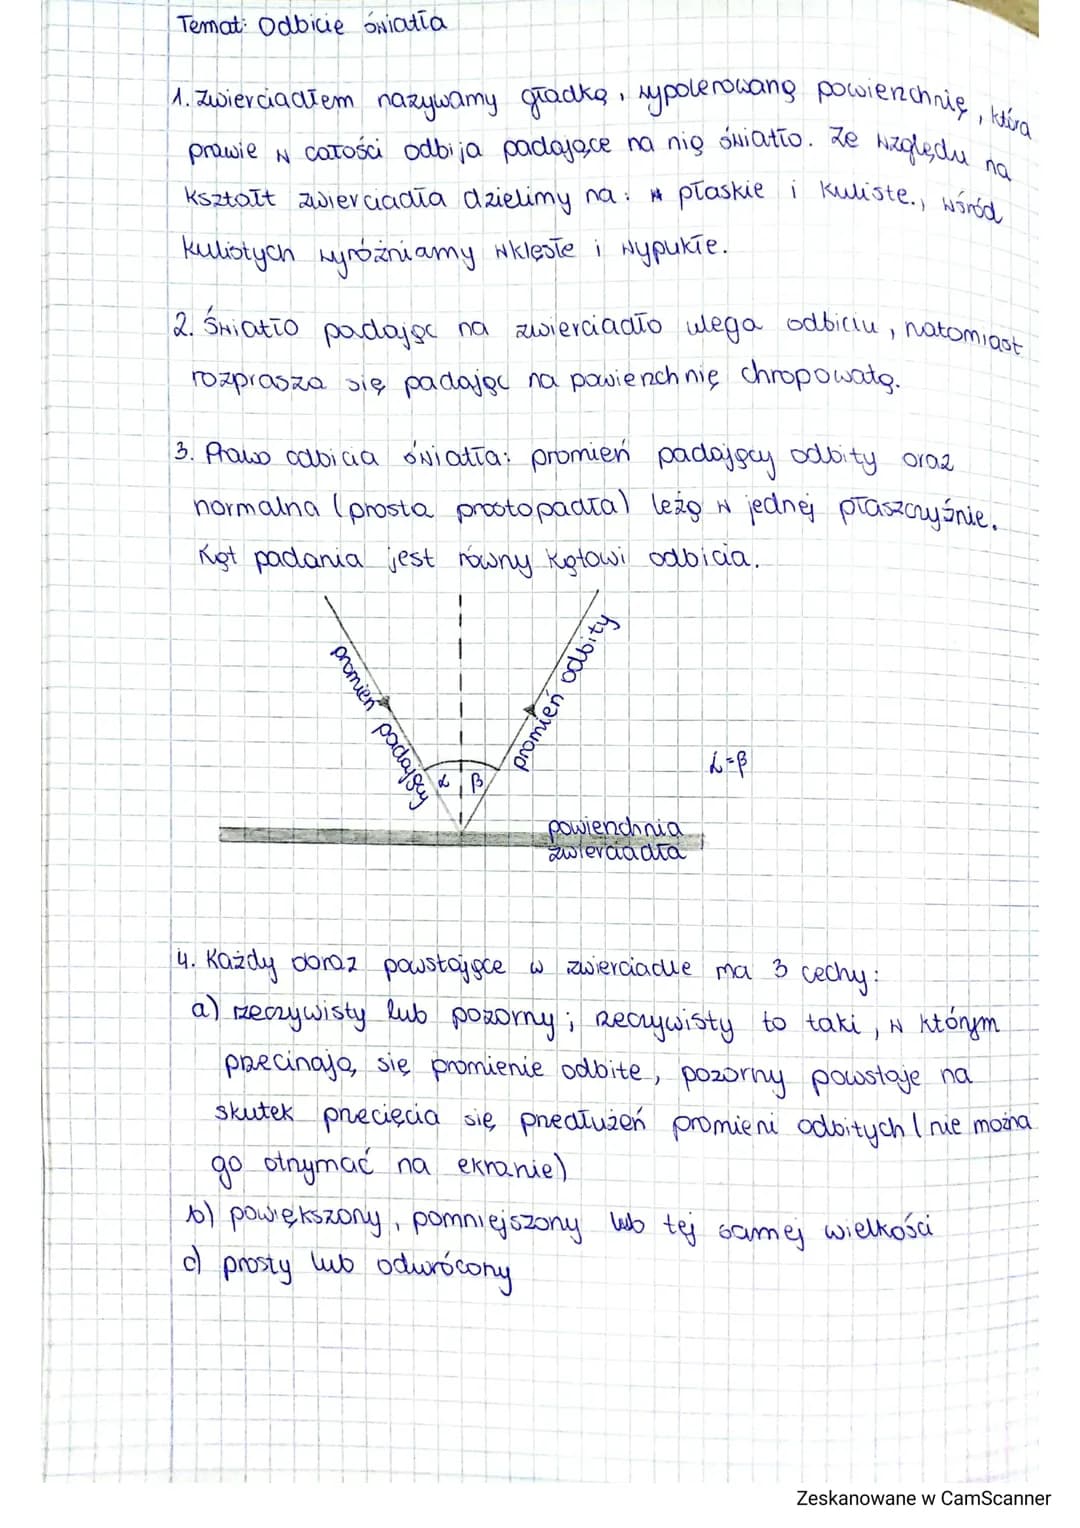 Temat: Odbicie światła
1. Zwierciadłem nazywamy gładką, wypolerowaną powierzchnię, która
prawie w całości odbija padające na nią światło. Ze względu na
kształt zwierciadła dzielimy na: płaskie i kuliste., wśród
kulistych wyróżniamy wklęsłe i wypukłe.
2. Światło padając na zwierciadło ulega odbiciu, natomiast
rozprasza się padając na powierzchnię chropowatą.
3. Prawo odbicia światła: promień padający odbity oraz
normalna (prosta prostopadła) leżą w jednej płaszczyźnie.
Kąt padania jest równy kątowi odbicia.
promień padający
promień odbity
α β
α=β
powierzchnia
zwierciadła
4. Każdy obraz powstające w zwierciadle ma 3 cechy:
a) rzeczywisty lub pozorny; Rzeczywisty to taki, w którym
przecinają się promienie odbite, pozorny powstaje na
skutek przecięcia się przedłużeń promieni odbitych (nie można
go otrzymać na ekranie)
b) powiększony, pomniejszony lub tej samej wielkości
c) prosty lub odwrócony
Zeskanowane w CamScanner